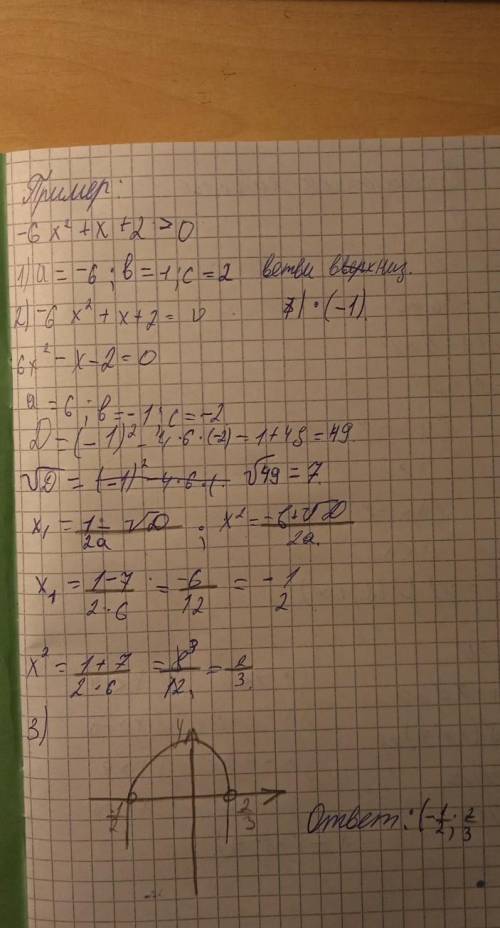 Пример:
-6x² + x + 2 > 0
1) a = -6 ; в = 1 ; c = 2 ветви вниз.
2) -6x² + x + 2 = 0 | · (-1)
6x² - x - 2 = 0
a = 6 ; в = -1 ; c = -2
D = (-1)² - 4 · 6 · (-2) = 1 + 48 = 49
√D = (-1)² - 4 · 6 · (- √49 = 7
x₁ = 1 - √D / 2a ; x² = -в + √D / 2a.
x₁ = 1 - 7 / 2 · 6 = -6 / 12 = - 1 / 2
x² = 1 + 7 / 2 · 6 = 8 / 12 = 2 / 3
3)
y
-1/2 2/3
Ответ: (-1/2; 2/3